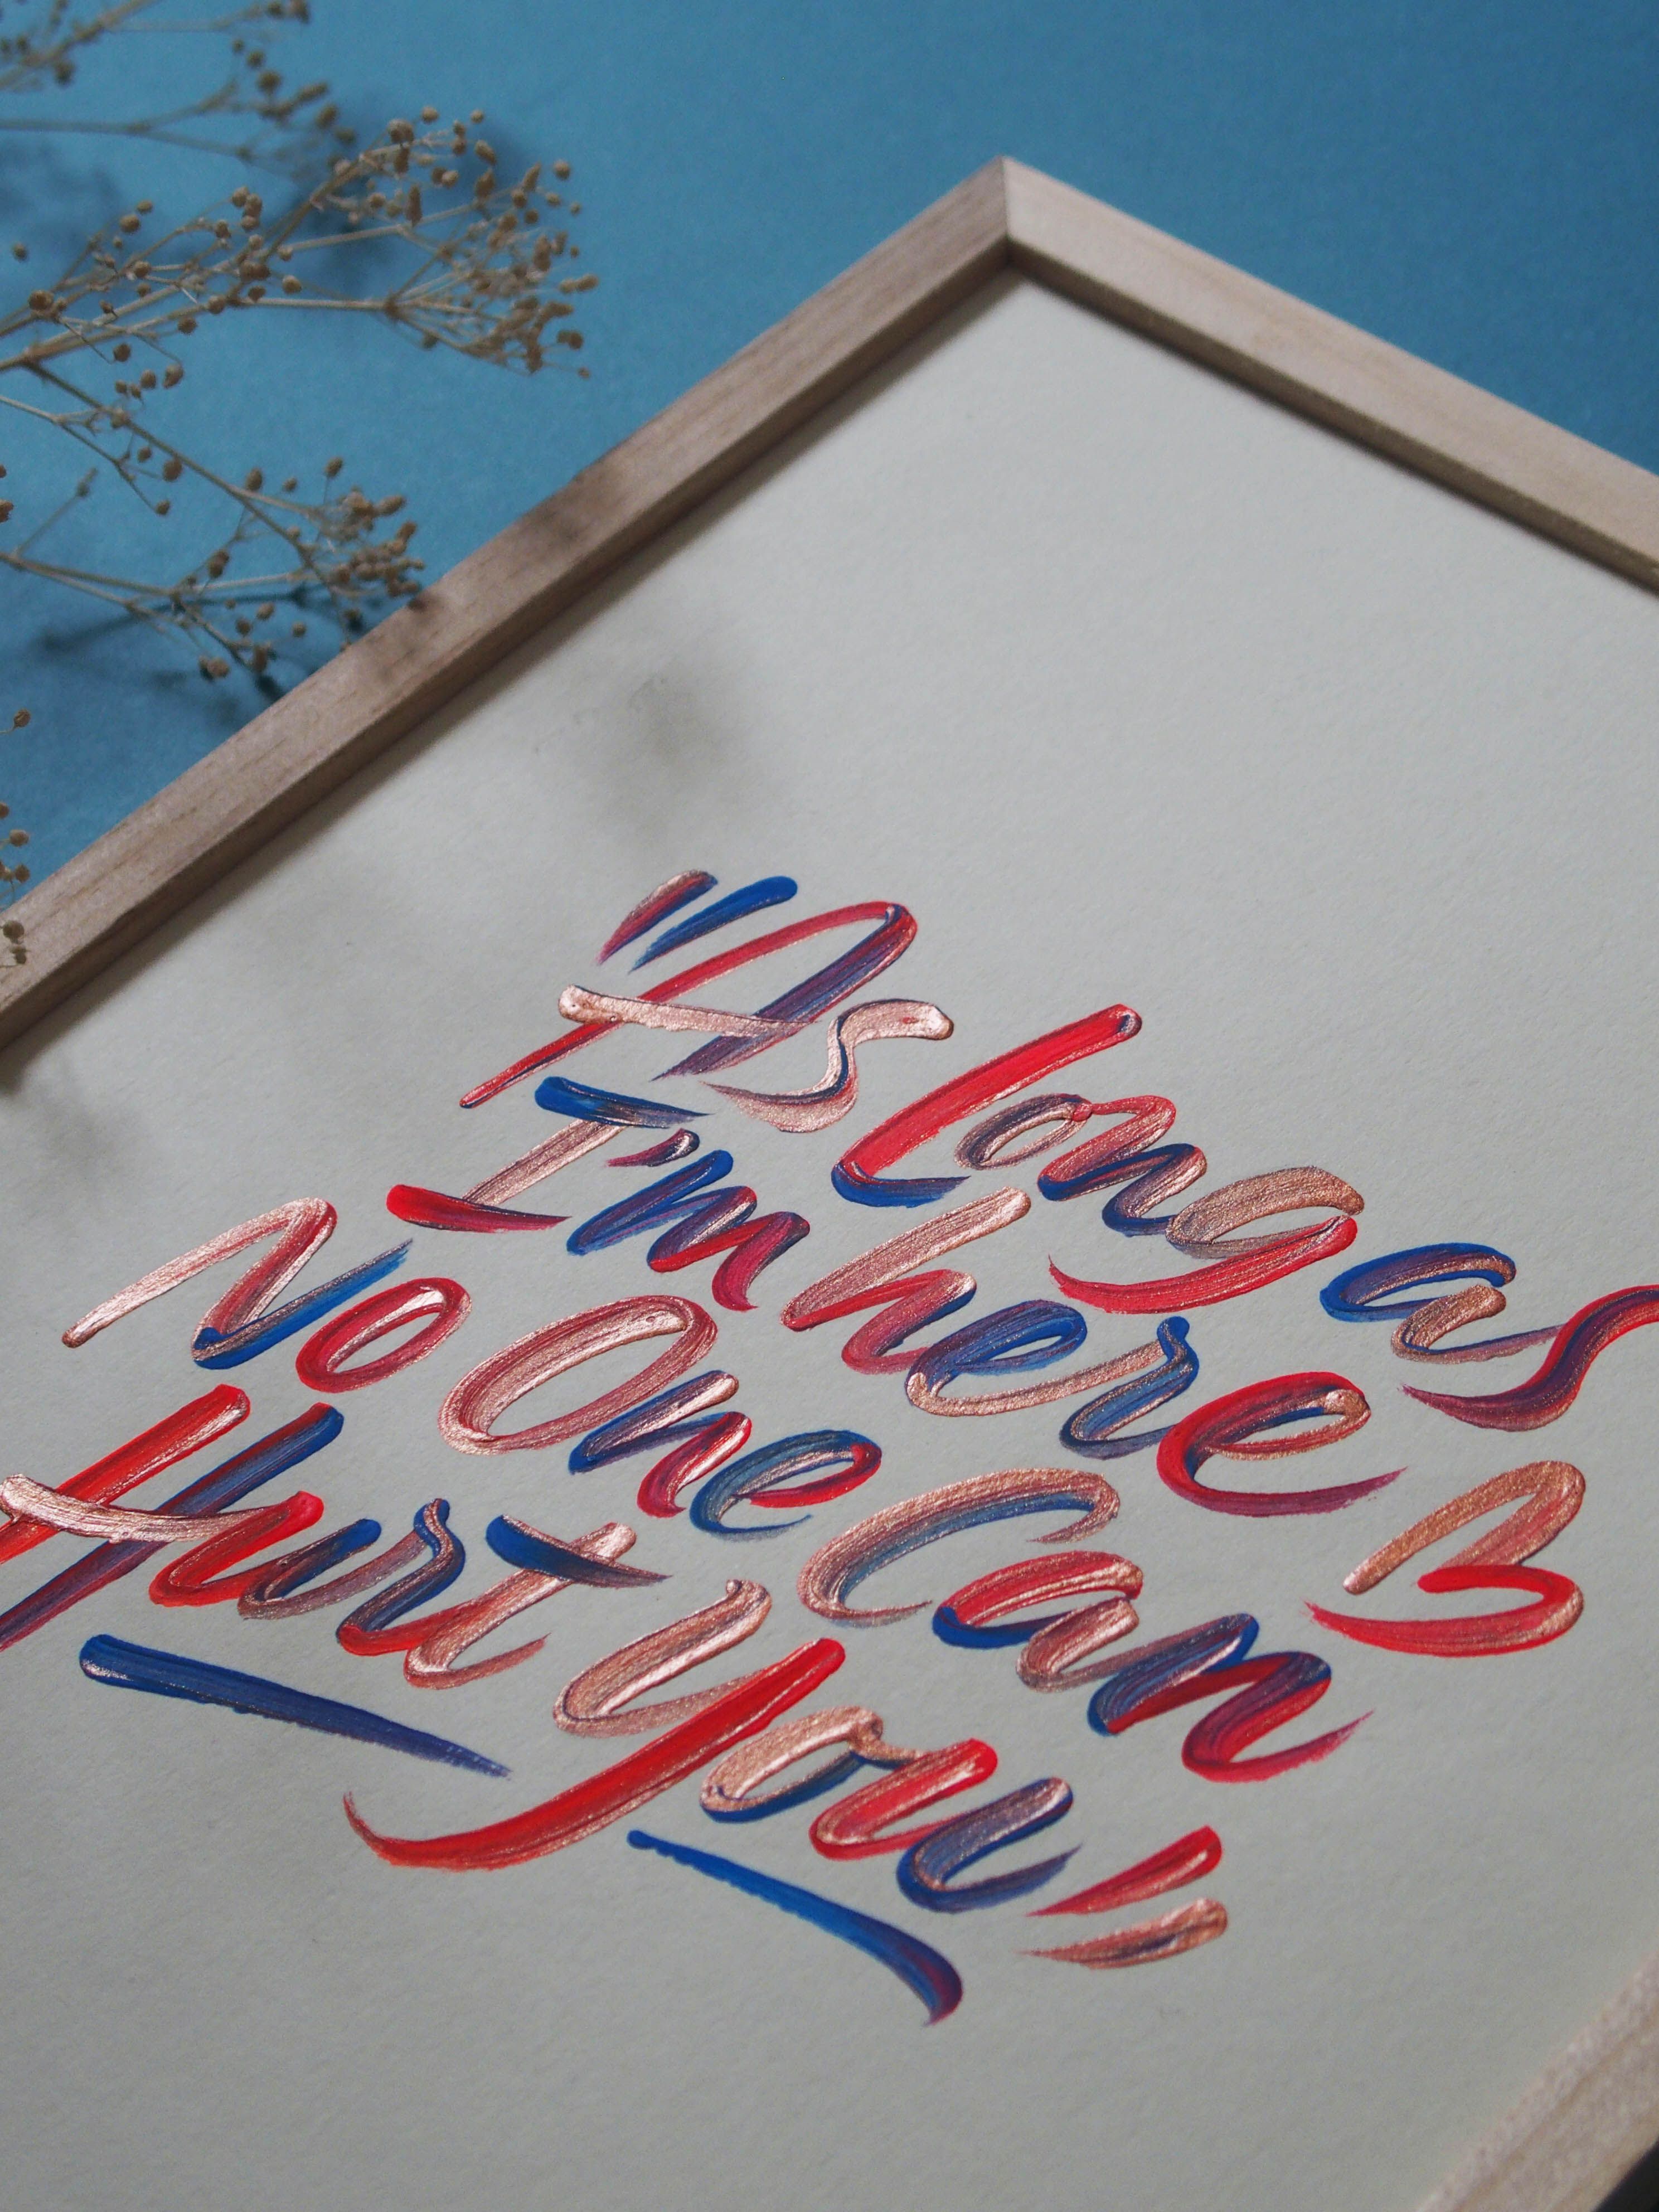 "As long as
I'm here
No One Can
Hurt You"